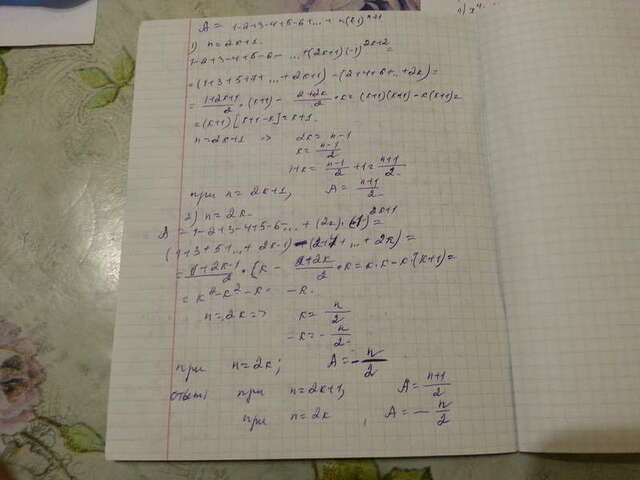 A = 1-2+3-4+5-6+...+ n(-1)^{n+1}
1) n=2k+1.
1-2+3-4+5-6-...+(2k+1)(-1)^{2k+2}=
=(1+3+5+7+...+2k+1)-(2+4+6+...+2k)=
=\frac{1+2k+1}{2}·(k+1)-\frac{2+2k}{2}·k=(k+1)(k+1)-k(k+1)=
=(k+1)[k+1-k]=k+1.
n=2k+1 => 2k=n-1
k=\frac{n-1}{2}
1+k=\frac{n-1}{2}+1=\frac{n+1}{2}
при n=2k+1, A=\frac{n+1}{2}
2) n=2k.
A=1-2+3-4+5-6-...+(2k)·(-1)^{2k+1}=
(1+3+5+...+2k-1)-(2+4+...+2k)=
=\frac{1+2k-1}{2}·k-\frac{2+2k}{2}·k=k·k-k·(k+1)=
=k²-k²-k=-k.
n=2k=> k=\frac{n}{2}
-k=-\frac{n}{2}
при n=2k; A=-\frac{n}{2}
ответ: при n=2k+1, A=\frac{n+1}{2}
при n=2k, A=-\frac{n}{2}